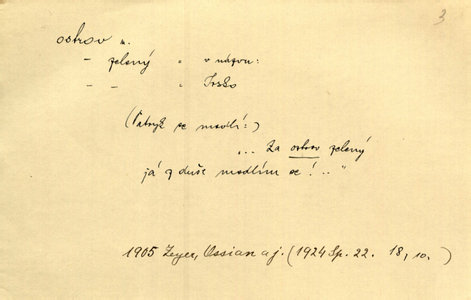 3
ostrov m.
– zelený „ v názvu:
– – „ Irsko
(Patryk se modlí:)
„... Za ostrov zelený
já z duše modlím se!..“
1905 Zeyer, Ossian a j. (1924 Sp. 22. 18, 10.)